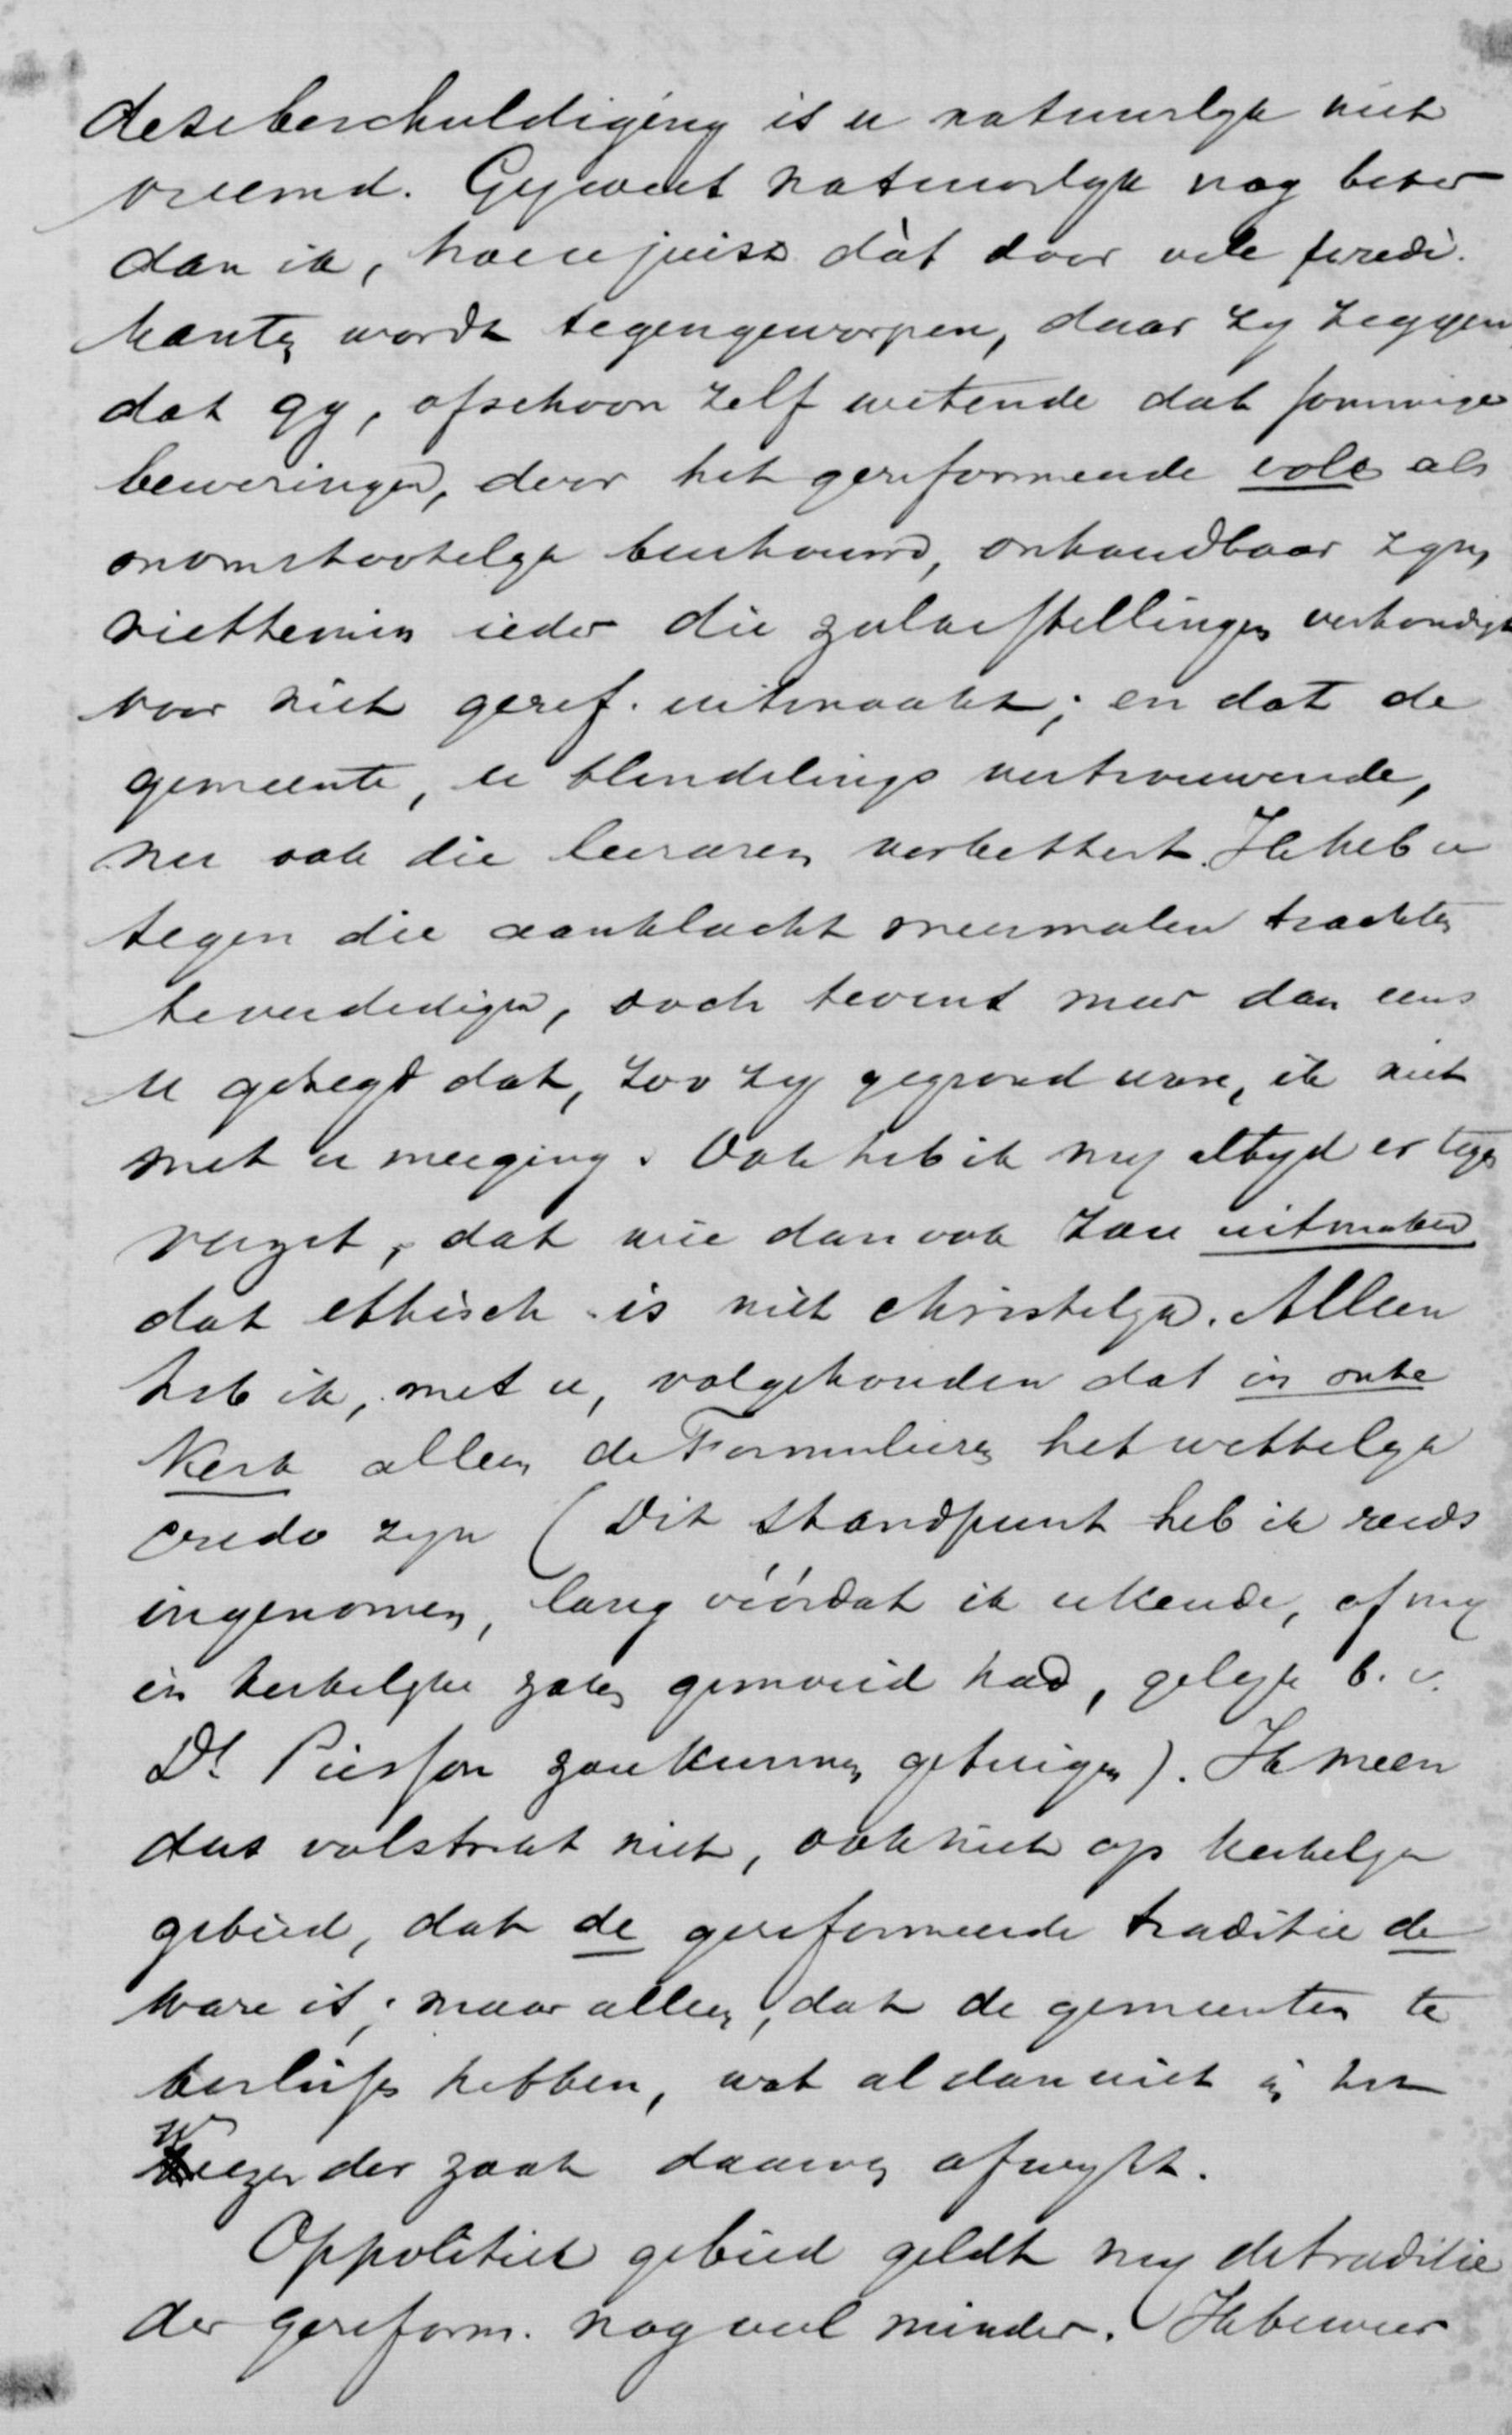 deze beschuldiging is u natuurlyk niet
vreemd. Gy weet natuurlyk nog beter
dan ik, hoe u juist dàt door vele predi-
kanten wordt tegengeworpen, daar zy zeggen
dat gy, ofschoon zelf wetende dat sommige
beweringen, door het gereformeerde volk als
onomstootelyk beschouwd, onhoudbaar zyn,
niettemin ieder die zulke stellingen verkondigt
voor niet geref. uitmaakt; en dat de
gemeente, u blindelings vertrouwende,
nu ook die leeraren verkettert. Ik heb u
tegen die aanklacht meermalen trachten
te verdedigen, doch tevens meer dan eens
u gezegd dat, zoo zy gegrond ware, ik niet
met u meeging. Ook heb ik my altyd er tegen
verzet, dat wie dan ook zou uitmaken
dat ethisch is niet christelyk. Alleen
heb ik, met u, volgehouden dat in onze
Kerk alleen de Formulieren het wettelyk
credo zyn (Dit standpunt heb ik reeds
ingenomen, lang vóórdat ik u kende, of my
in kerkelyke zaken gemoeid had, gelyk b.v.
Ds. Pierson zou kunnen getuigen). Ik meen
dus volstrekt niet, ook niet op kerkelyk
gebied, dat de gereformeerde traditie de
ware is; maar alleen, dat de gemeenten te
beslissen hebben, wat al dan niet in het
weezen der zaak daarvan afwykt.
Op politiek gebied geldt my de traditie
der gereform. nog veel minder. Ik beweer